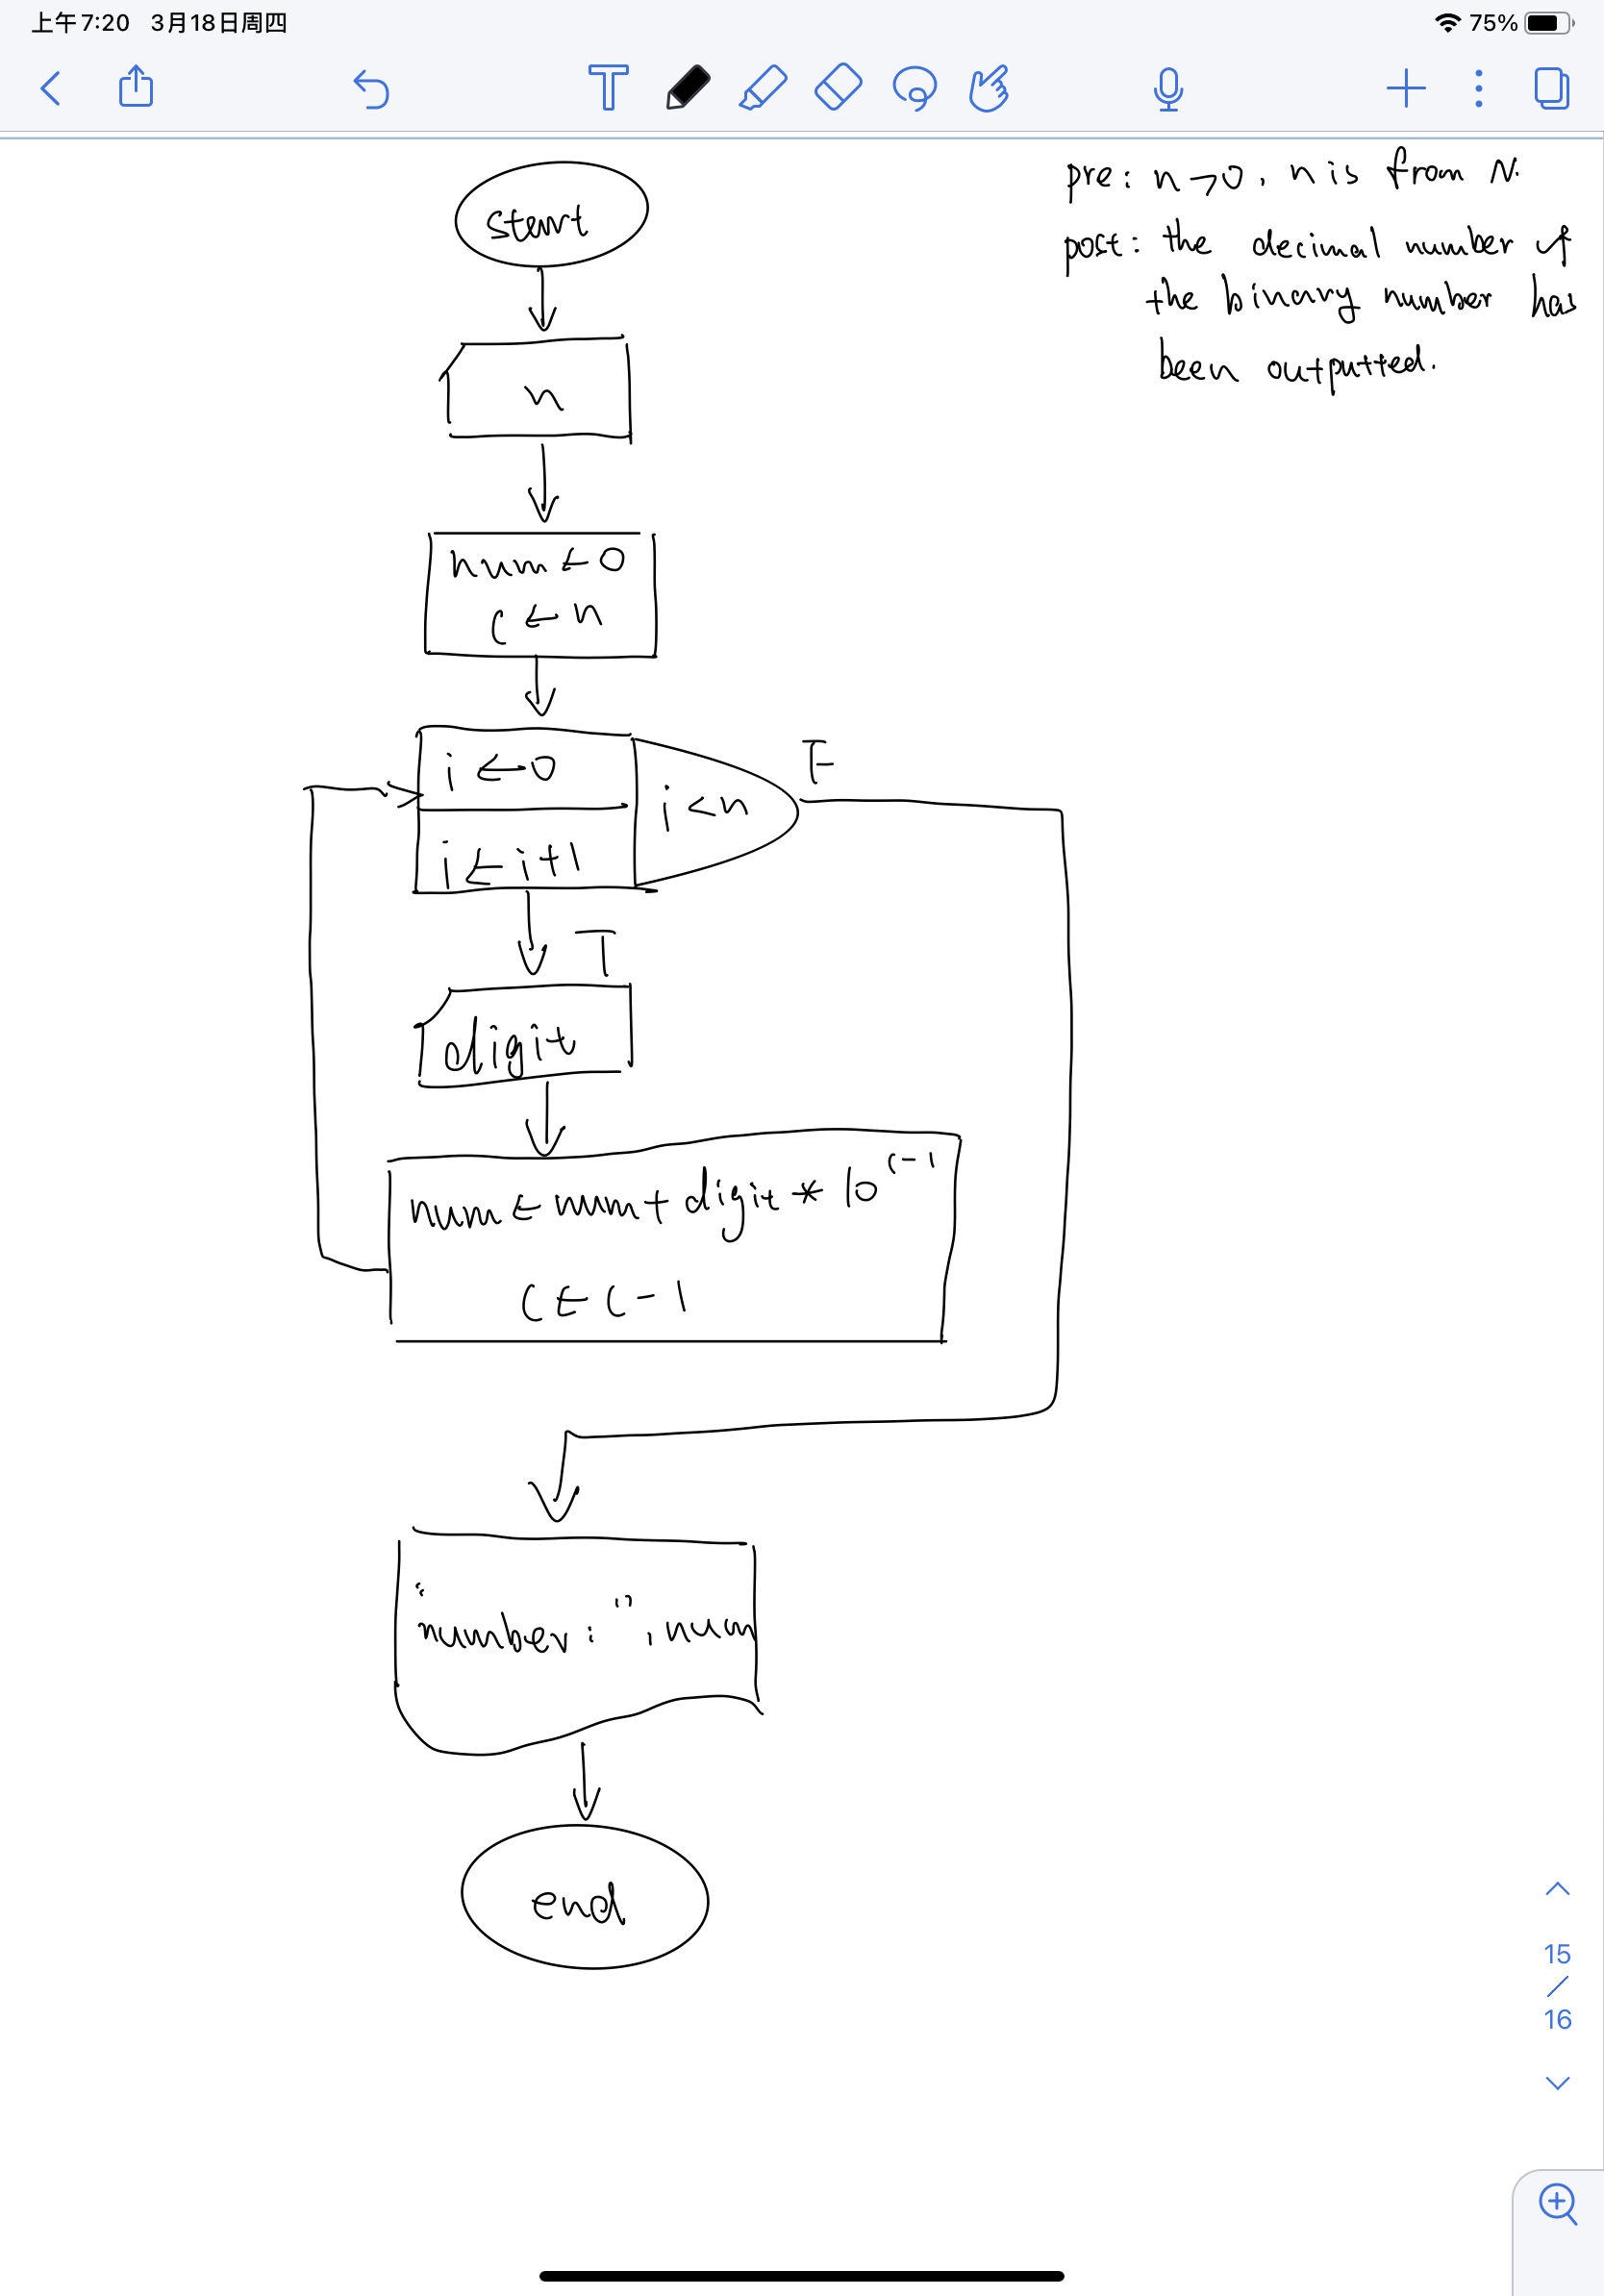 上午7:20 3月18日周四
75%
T
pre: n>0, n is from N.
post: the decimal number of
the binary number has
been outputted.
start
n
num ← 0
c ← n
i ← 0
i < n
F
i ← i+1
T
digit
num ← num + digit * 10^c-1
c ← c - 1
"number: ", num
end
15
/
16